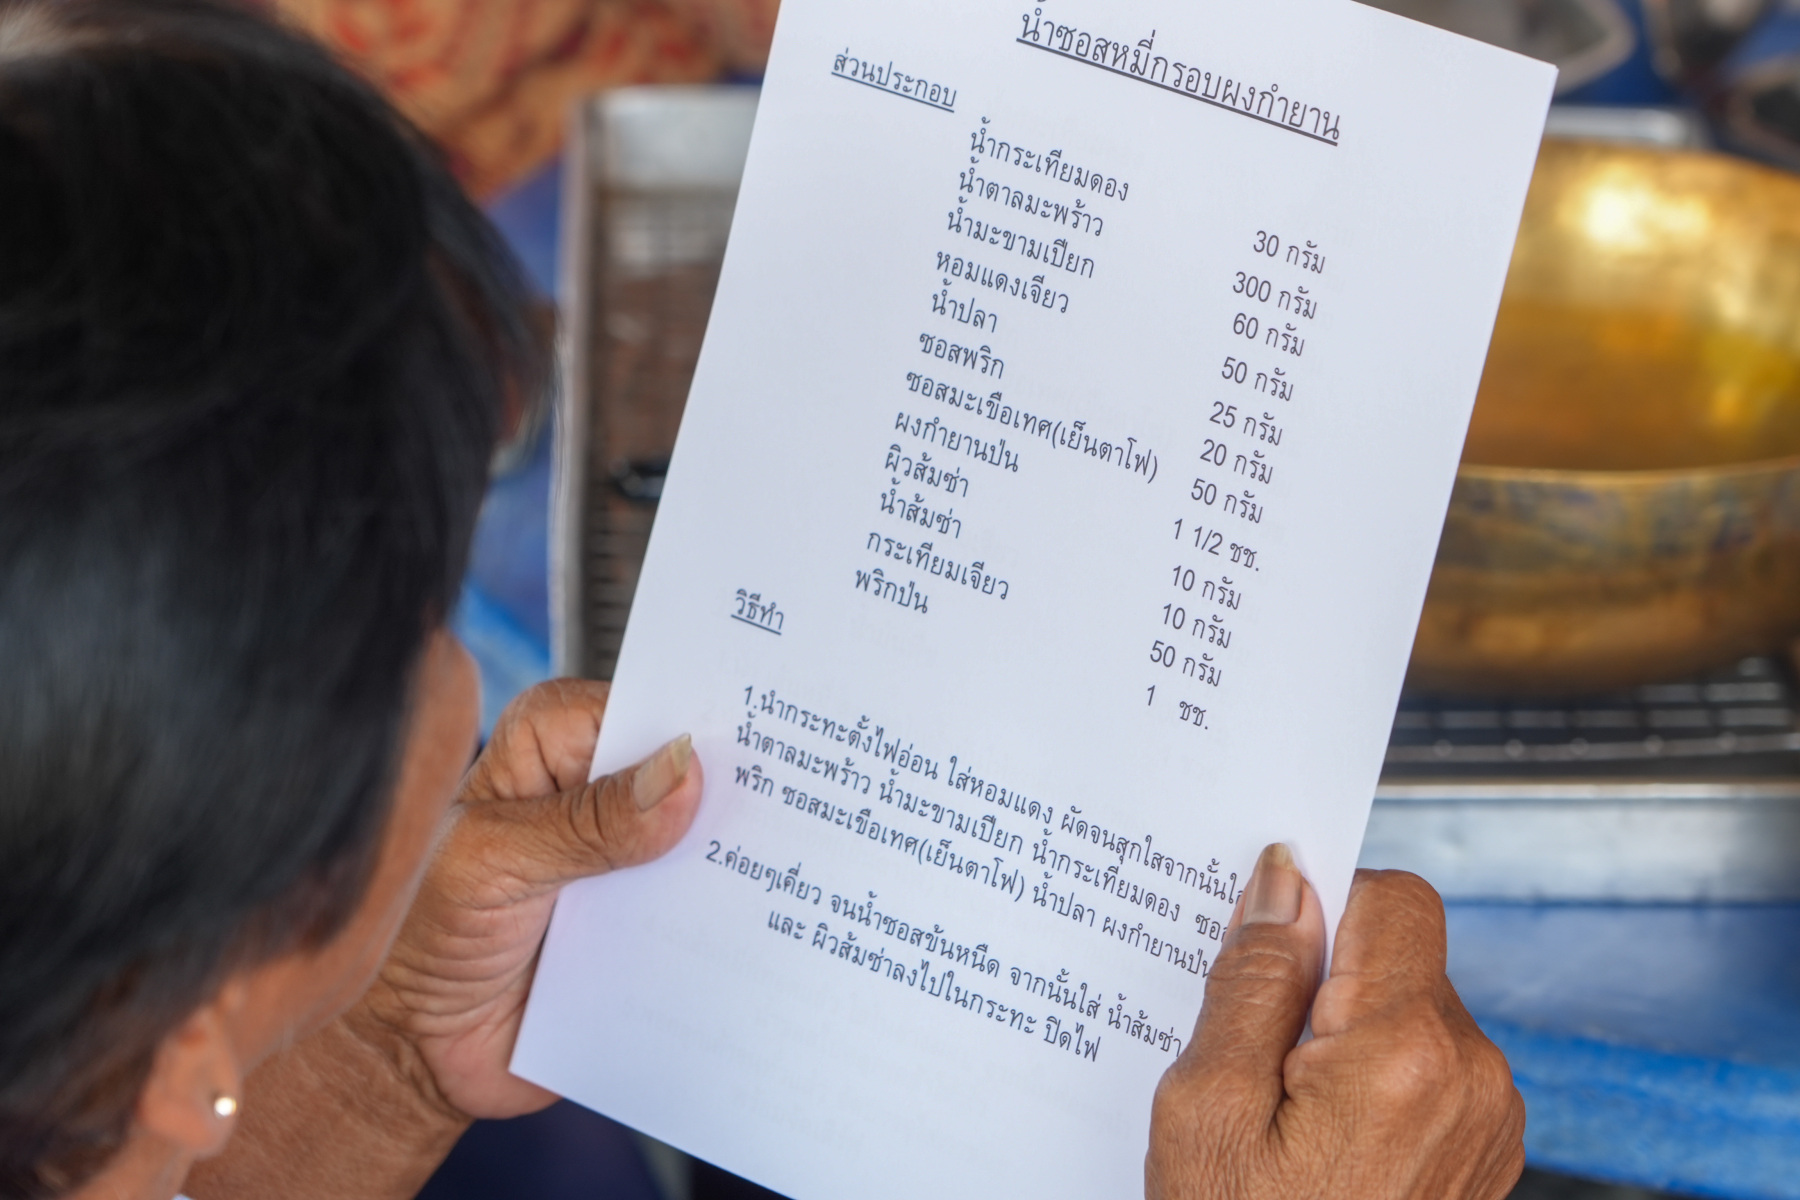 น้ำซอสหมี่กรอบผงกำยาน
ส่วนประกอบ
น้ำกระเทียมดอง 30 กรัม
น้ำตาลมะพร้าว 300 กรัม
น้ำมะขามเปียก 60 กรัม
หอมแดงเจียว 50 กรัม
น้ำปลา 25 กรัม
ซอสพริก 20 กรัม
ซอสมะเขือเทศ(เย็นตาโฟ) 50 กรัม
ผงกำยานป่น 1 1/2 ชช.
ผิวส้มซ่า 10 กรัม
น้ำส้มซ่า 10 กรัม
กระเทียมเจียว 50 กรัม
พริกป่น 1 ชช.
วิธีทำ
1.นำกระทะตั้งไฟอ่อน ใส่หอมแดง ผัดจนสุกใสจากนั้น
น้ำตาลมะพร้าว น้ำมะขามเปียก น้ำกระเทียมดอง
พริก ซอสมะเขือเทศ(เย็นตาโฟ) น้ำปลา ผงกำยานป่น
2.ค่อยๆเคี่ยว จนน้ำซอสข้นหนืด จากนั้นใส่ น้ำส้มซ่า
และ ผิวส้มซ่าลงไปในกระทะ ปิดไฟ